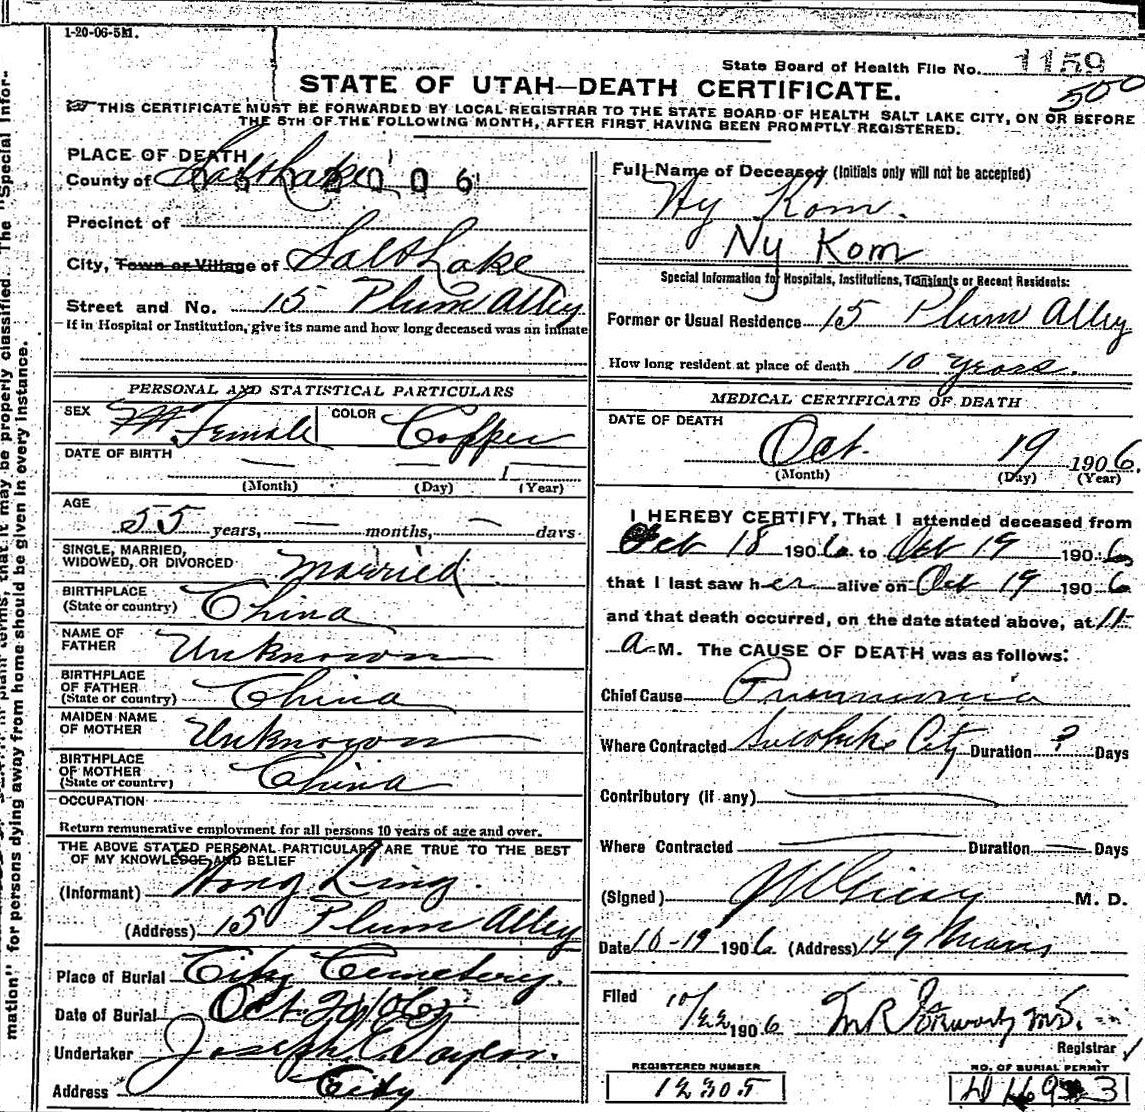 1-20-06-5M.
State Board of Health File No. 1159
500
STATE OF UTAH—DEATH CERTIFICATE.
THIS CERTIFICATE MUST BE FORWARDED BY LOCAL REGISTRAR TO THE STATE BOARD OF HEALTH SALT LAKE CITY, ON OR BEFORE
THE 5TH OF THE FOLLOWING MONTH, AFTER FIRST HAVING BEEN PROMPTLY REGISTERED.
The "Special Infor-
mation" for persons dying away from home should be given in every instance.
PLACE OF DEATH
County of Salt Lake
Precinct of
City, Town or Village of Salt Lake
Street and No. 15 Plum Alley
If in Hospital or Institution, give its name and how long deceased was an inmate
PERSONAL AND STATISTICAL PARTICULARS
SEX Female COLOR Copper
DATE OF BIRTH
(Month) (Day) 1 (Year)
AGE
55 years, — months, — days
SINGLE, MARRIED,
WIDOWED, OR DIVORCED Married
BIRTHPLACE
(State or country) China
NAME OF
FATHER Unknown
BIRTHPLACE
OF FATHER
(State or country) China
MAIDEN NAME
OF MOTHER Unknown
BIRTHPLACE
OF MOTHER
(State or country) China
OCCUPATION
Return remunerative employment for all persons 10 years of age and over.
THE ABOVE STATED PERSONAL PARTICULARS ARE TRUE TO THE BEST
OF MY KNOWLEDGE AND BELIEF
(Informant) Wong Ling.
(Address) 15 Plum Alley
Place of Burial City Cemetery.
Date of Burial Oct. 21/06
Undertaker Joseph E. Taylor.
Address City
Full Name of Deceased (Initials only will not be accepted)
Ny Kom.
Ny Kom
Special Information for Hospitals, Institutions, Transients or Recent Residents:
Former or Usual Residence 15 Plum Alley
How long resident at place of death 10 years.
MEDICAL CERTIFICATE OF DEATH
DATE OF DEATH
Oct. 19 1906.
(Month) (Day) (Year)
I HEREBY CERTIFY, That I attended deceased from
Oct 18 1906 to Oct 19 1906
that I last saw her alive on Oct 19 1906
and that death occurred, on the date stated above, at 11
a M. The CAUSE OF DEATH was as follows:
Chief Cause Pneumonia
Where Contracted City Duration ? Days
Contributory (if any)
Where Contracted Duration — Days
(Signed) M. D.
Date 10-19 1906 (Address) 149
Filed 10/22 1906 M.D.
Registrar
REGISTERED NUMBER
12305
NO. OF BURIAL PERMIT